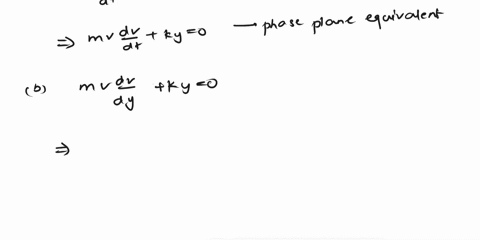 dt
⇒ mv dv/dt + ky=0 — phase plane equivalent
(b) mv dv/dy + ky=0
⇒